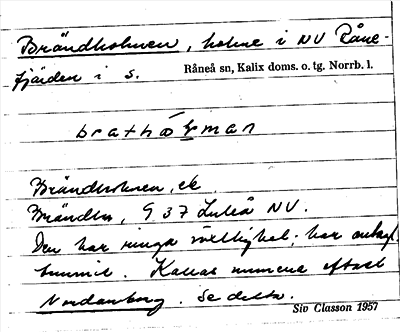 Brändholmen, holme i NV Råne-
fjärden i s. Råneå sn, Kalix doms. o. tg. Norrb. l.
Brändholmen, ek.
Brändh, 9 37 Luleå NV.
Den har ringa växtlighet; har
. Kallas numera oftast
Nordanborg. Se detta.
Siv Classon 1957